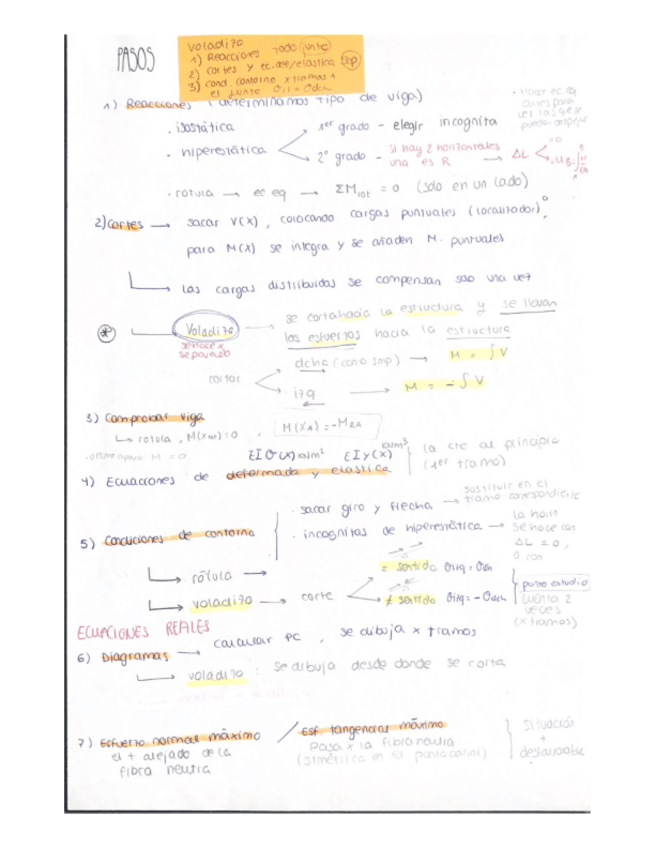 PASOS
Voladizo
1) Reacciones todo junto
2) Cortes y ec. def/elastica sep
3) cond. contorno x tramos +
el punto
1) Reacciones (determinamos tipo de viga)
. isostática
. hiperestática
1er grado - elegir incognita
2º grado - si hay 2 horizontales
una es R → ΔL
. rotula → ec eq → ΣM rot = 0 (solo en un lado)
2) Cortes → sacar V(x), colocando cargas puntuales (localizador)º,
para M(x) se integra y se añaden M. puntuales
Las cargas distribuidas se compensan solo una vez
* Voladizo → se corta hacia la estructura y se llevan
los esfuerzos hacia la estructura
se hace x
separado
cortar
dcha (como smp) → M = ∫V
izq → M = -∫V
3) Comprobar viga
rotula, M(xrot)=0, M(XA) = -MRA
M = 0
4) Ecuaciones de deformada y elastica
EI θ(x) kNm² EI y(x) kNm³
la cte al principio
(1er tramo)
5) Condiciones de contorno
. sacar giro y flecha → sustituir en el
tramo correspondiente
. incognitas de hiperestática → la horiz
se hace con
ΔL = 0,
θ con
rótula →
voladizo → corte
= sentido θizq = θdch
≠ sentido θizq = -θdch
punto estudio
cuenta 2
veces
(x tramos)
ECUACIONES REALES
6) Diagramas → calcular PC, se dibuja x tramos
voladizo: se dibuja desde donde se corta
7) Esfuerzo normal máximo / Esf tangencial máximo
el + alejado de la
fibra neutra
Pasa x la fibra neutra
(simétrica en el punto canto)
situación
+
desfavorable